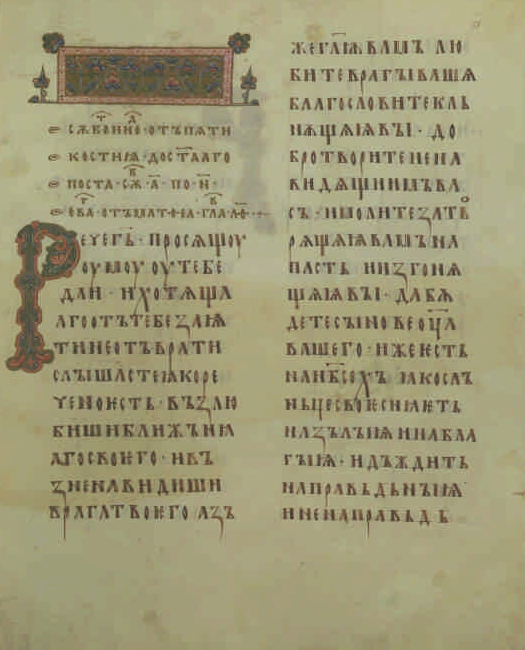 сѫ҃в̑онно·отъпѧти
костиꙗ·достааго
поста·сѫ҃·а҃·по·н҃·
еѵа·отъмат·ѳеа·гла·ло҃·
Рече г҃ь·просѧщоу
оумоу оу тебе
даи·и хотѧща
аго отъ тебе заѩ
ти не отъврати
слышасте ꙗко ре
чено ѥсть·възлю
биши ближьнꙗ
аго своѥго·и въ
зненавидиши
врага твоѥго азъ
же гл҃ѭ вамъ лю
бите врагы вашѧ
благословите кль
нѫщѧꙗ вы·до
бро творите нена
видѧщиимъ ва
съ·и молите за тв
орѧщѧꙗ вамъ на
пасть и изгонѧ
щѧꙗ вы·да бѫ
дете сынове оц҃а
вашего·иже ѥсть
на нб҃сехъ ꙗко слъ
ньце своѥ сиꙗѥть
на зълыꙗ и на бла
гыꙗ·и дъждить
на правьдьныꙗ
и на неправьдь